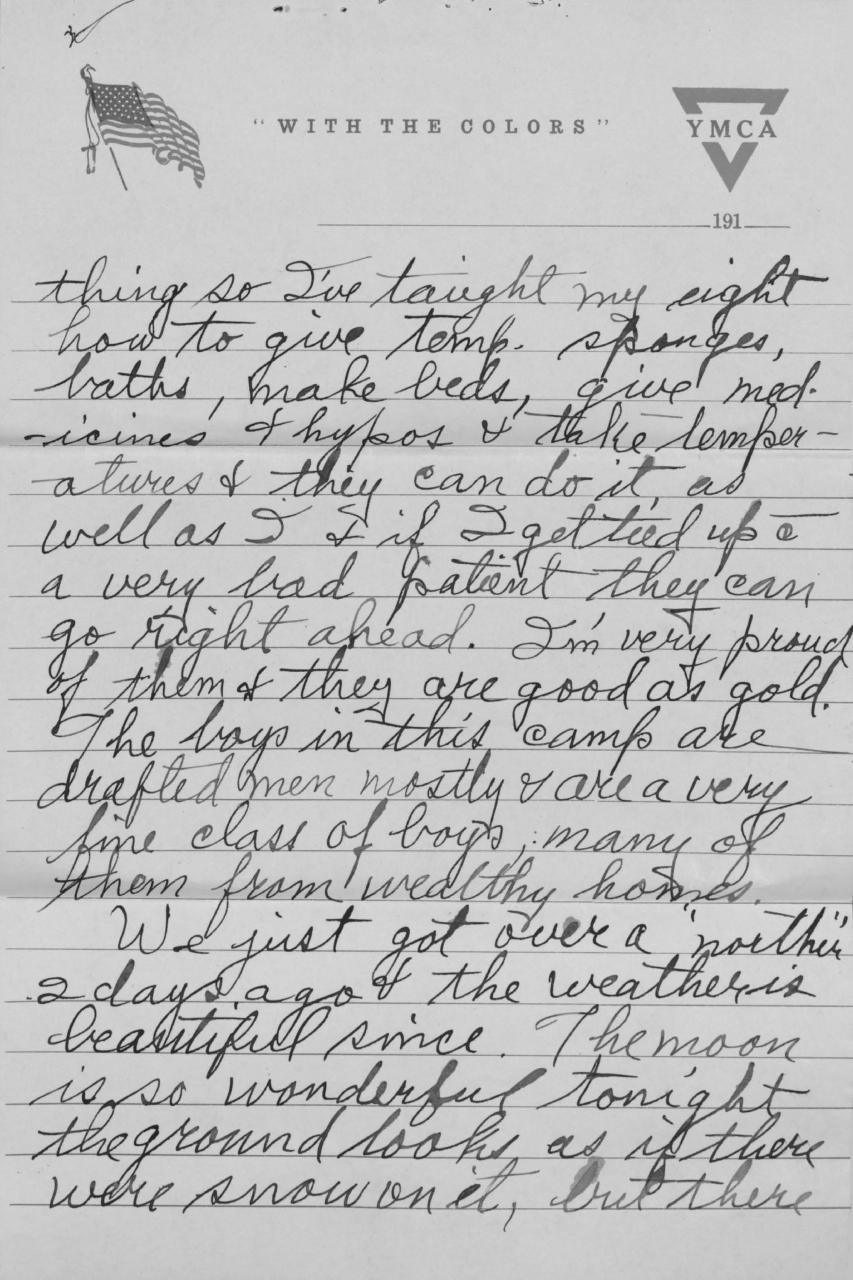 "WITH THE COLORS"
YMCA
191
thing so I've taught my eight
how to give temp. sponges,
baths, make beds, give med-
-icines & hypos & take temper-
-atures & they can do it, as
well as I & if I get tied up c̄
a very bad patient they can
go right ahead. I'm very proud
of them & they are good as gold.
The boys in this camp are
drafted men mostly & are a very
fine class of boys, many of
them from wealthy homes.
We just got over a "norther"
2 days ago & the weather is
beautiful since. The moon
is so wonderful tonight
the ground looks as if there
were snow on it, but there